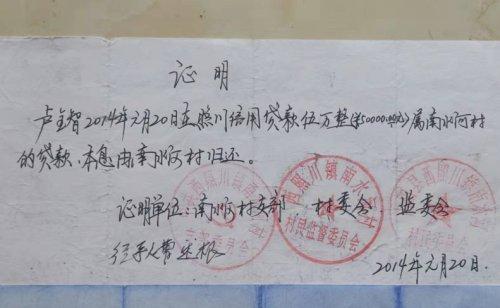 证明
卢全智2014年元月20日在照川信用贷款伍万整(¥50000.00元)属南水河村
的贷款、本息由南水河村归还。
证明单位:南水河村支部 村委会 监委会
经手人
2014年元月20日
照川镇南水河村
村民监督委员会
照川镇南水河村
村民委员会